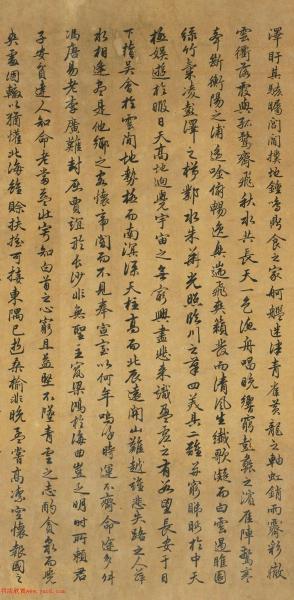 澤盱其駭矚閭閻撲地鍾鳴鼎食之家舸艦迷津青雀黃龍之軸虹銷雨霽彩徹
雲衢落霞與孤鶩齊飛秋水共長天一色漁舟唱晚響窮彭蠡之濱雁陣驚寒
聲斷衡陽之浦遙吟俯暢逸興遄飛爽籟發而清風生纖歌凝而白雲遏睢園
綠竹氣凌彭澤之樽鄴水朱華光照臨川之筆四美具二難並窮睇眄於中天
極娛遊於暇日天高地迥覺宇宙之無窮興盡悲來識盈虛之有數望長安于日
下指吳會於雲間地勢極而南溟深天柱高而北辰遠關山難越誰悲失路之人萍
水相逢盡是他鄉之客懷帝閽而不見奉宣室以何年嗚呼時運不齊命途多舛
馮唐易老李廣難封屈賈誼於長沙非無聖主竄梁鴻於海曲豈乏明時所賴君
子安貧達人知命老當益壯寧知白首之心窮且益堅不墜青雲之志酌貪泉而覺
爽處涸轍以猶懽北海雖賒扶搖可接東隅已逝桑榆非晚孟嘗高潔空懷報國之